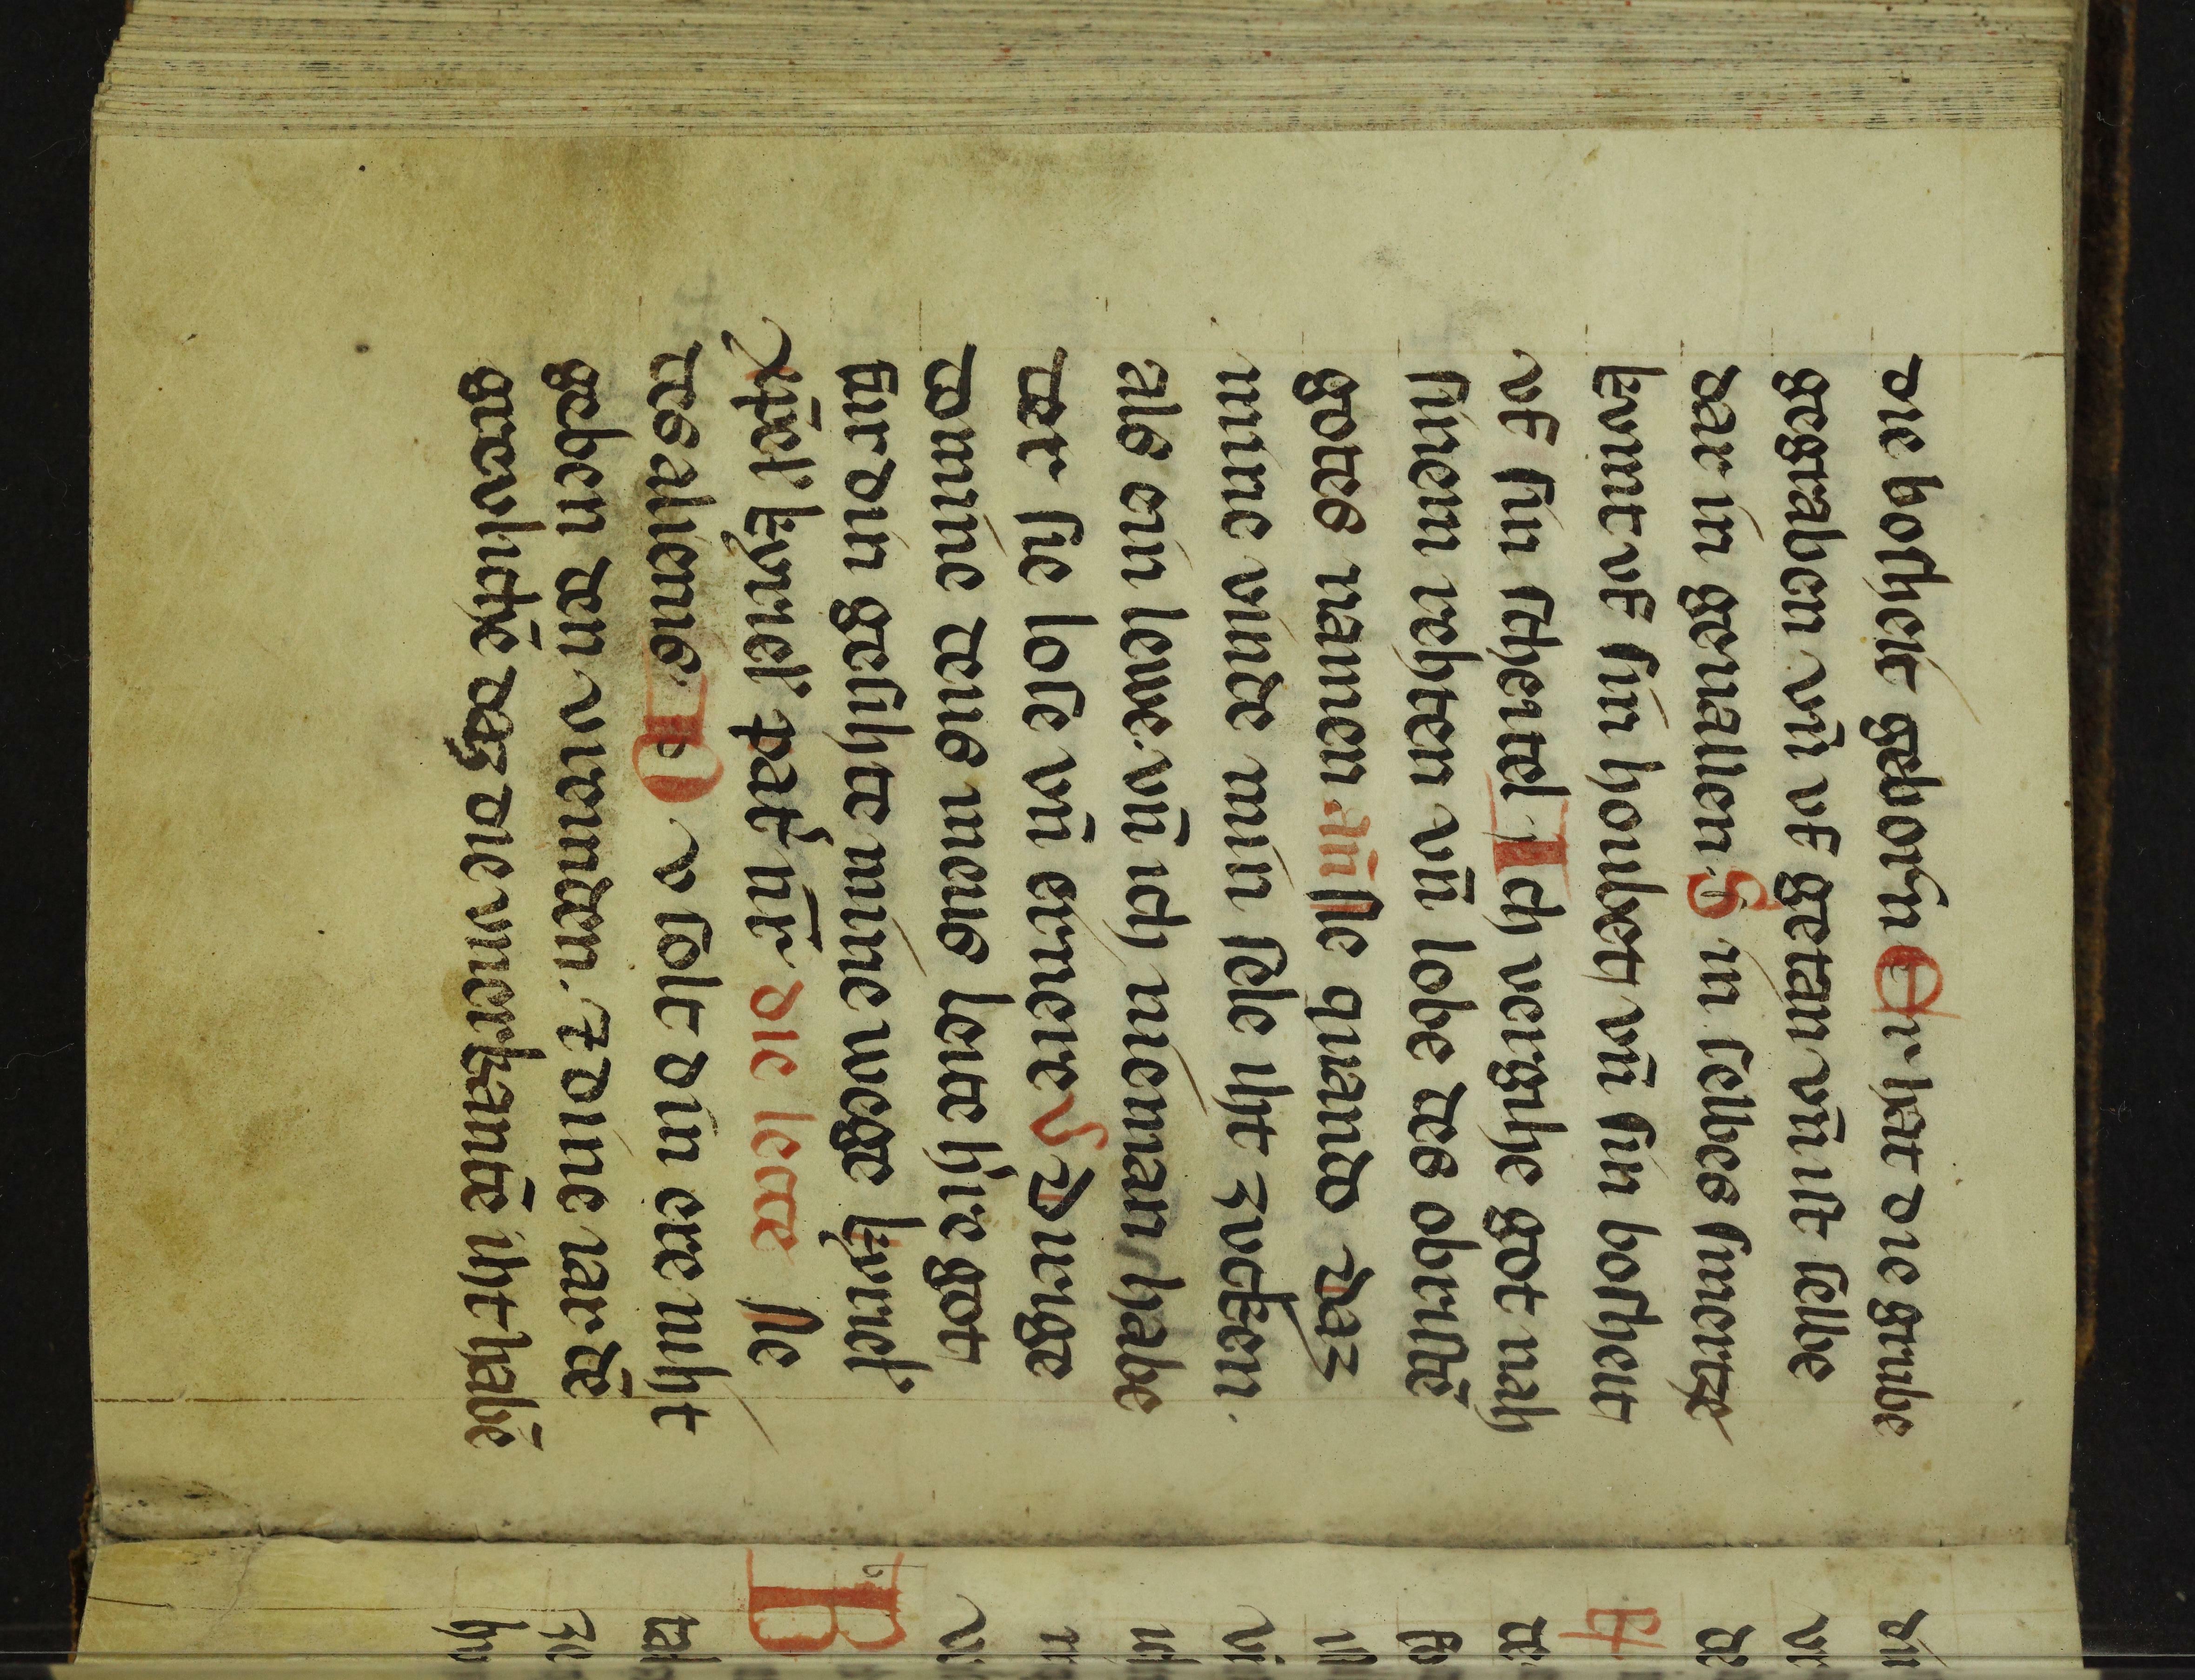 die bosheit geborn Er hat die grube
gegraben vn̄ vf getan vn̄ ist selbe
dar in geuallen. Sin selbes smertze
kvmt vf sin houbett vn̄ sin bosheit
vf sin scheitel. Ich vergihe got nah
sinem rehten vn̄ lobe des obristē
gottes namen an̄ Ne quando Daz
mine vinde min sele iht zvcken.
als ein lewe. vn̄ ich nieman habe
der sie lose vn̄ ernere Dirige
domine deus meus leite h're got
fur din gesihte mine wege kyriel'.
xp̄el'. kyriel'. pat' nr̄. die lecce Ne
des alienis. Dv solt din ere niht
geben den vremden. 7 dine iar dē
grevlichē daz die vnerkantē iht habē